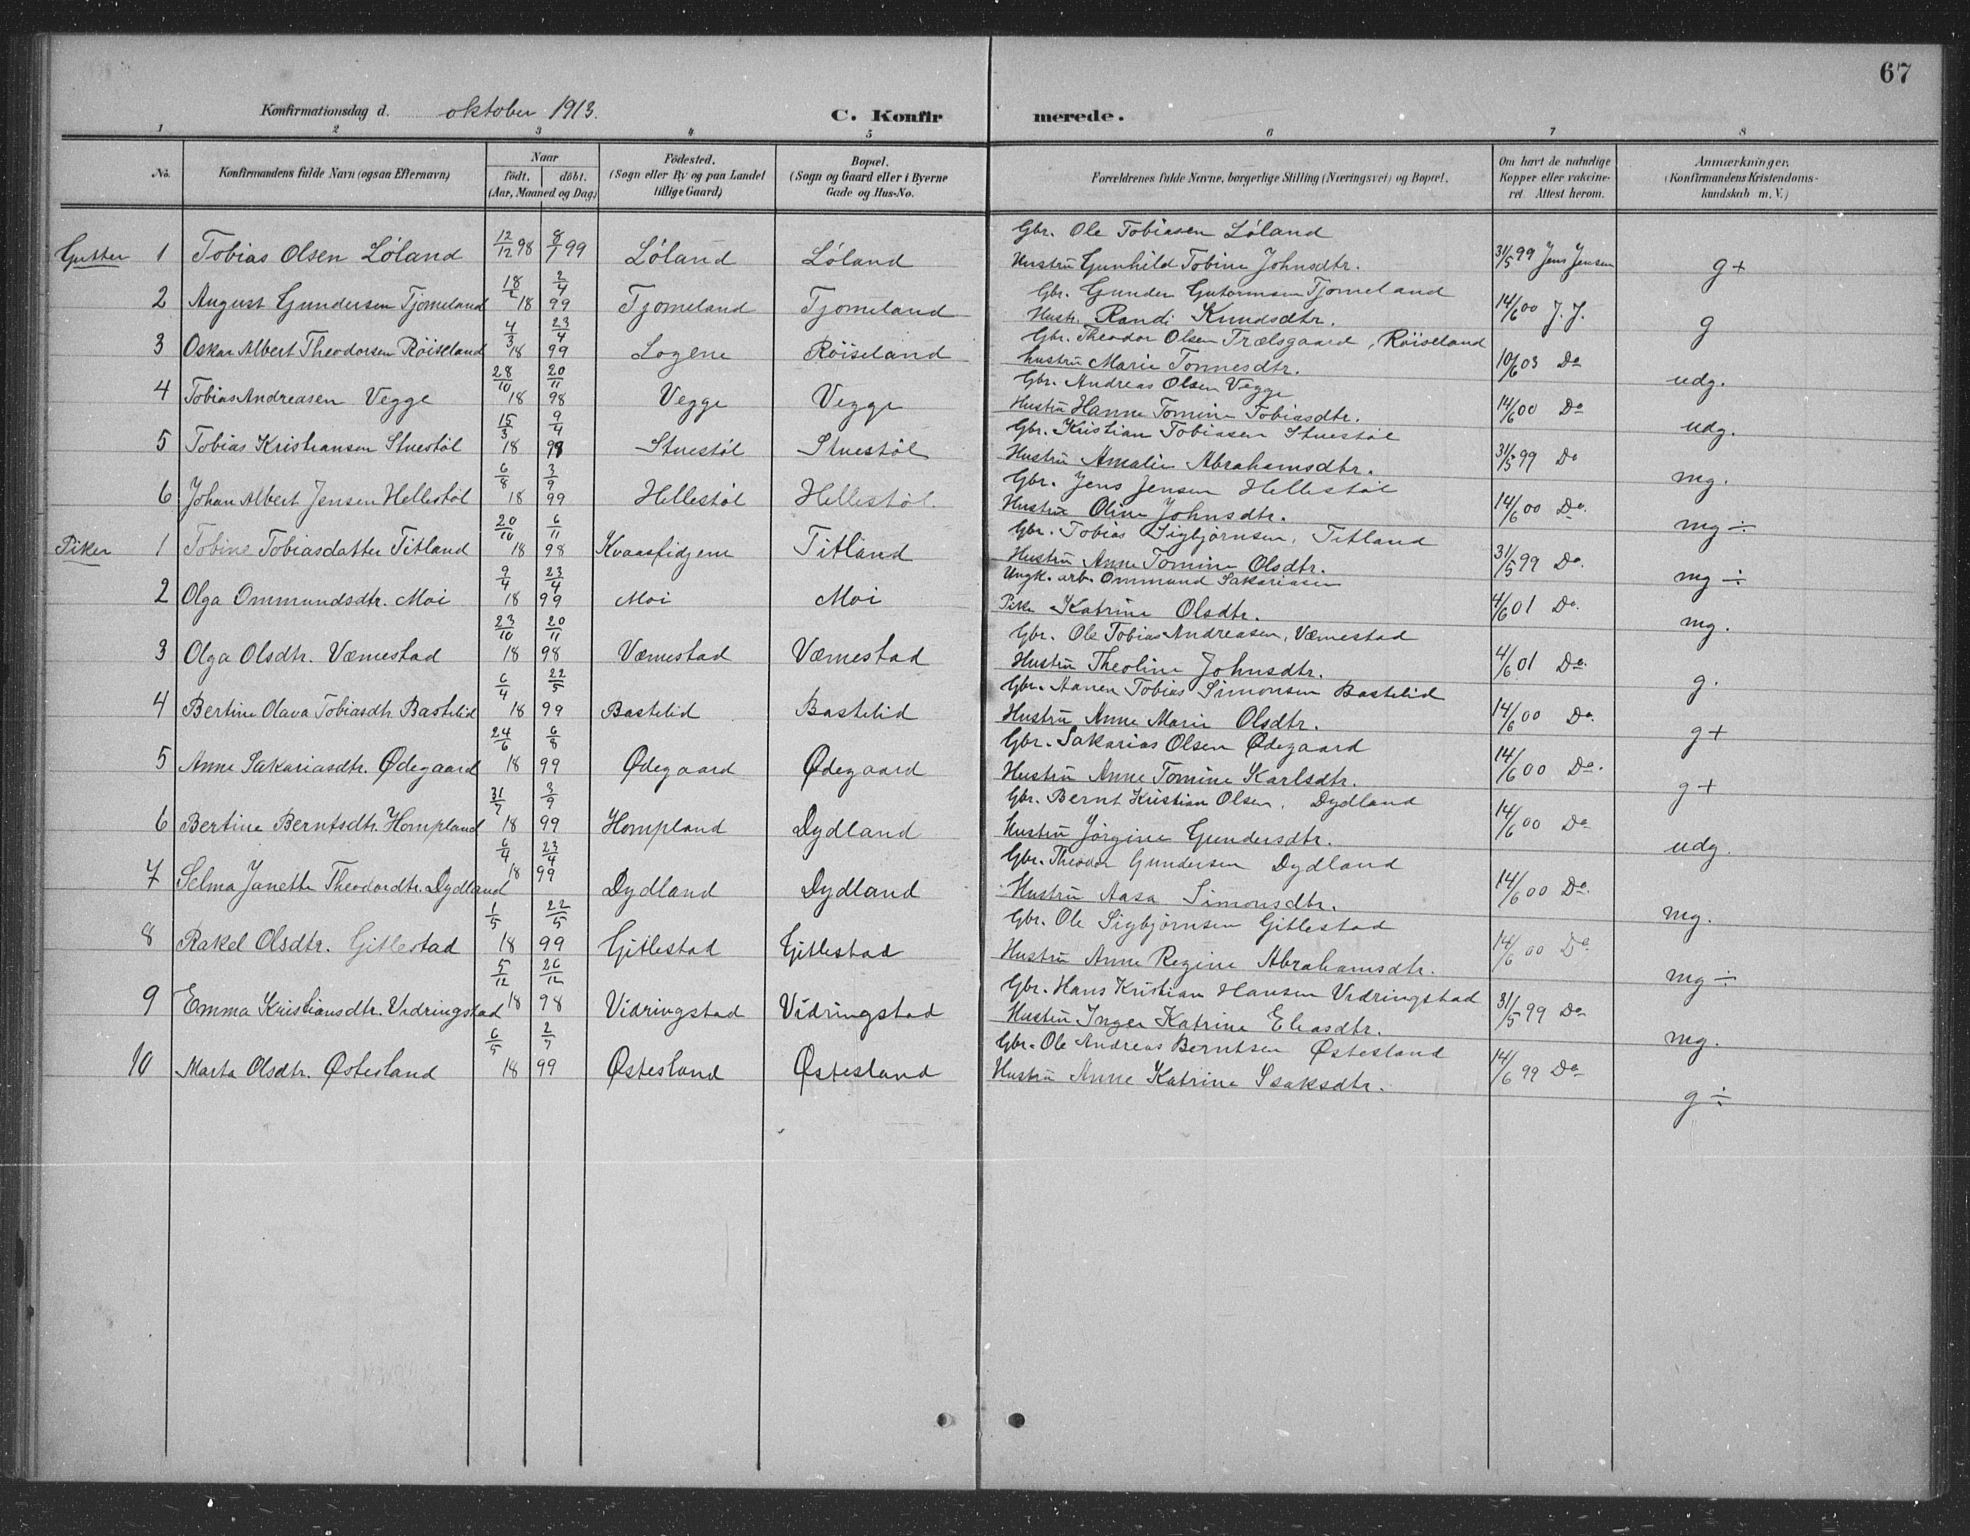 67
Konfirmationsdag d. oktober 1913. C. Konfirmerede.
1 2 3 4 5 6 7 8
No. Konfirmandens fulde Navn (ogsaa Efternavn) Naar födt. döbt. (Aar, Maaned og Dag) Födested. (Sogn eller By og paa Landet tillige Gaard) Bopæl. (Sogn og Gaard eller i Byerne Gade og Hus-No. Forældrenes fulde Navne, borgerlige Stilling (Næringsvei) og Bopæl. Om havt de naturlige Kopper eller vaccineret. Attest herom. Anmærkninger. (Konfirmandens Kristendomskundskab m. V.)
Gutter 1 Tobias Olsen Løland 12/12 98 8/1 99 Løland Løland Gbr. Ole Tobiasen Løland
Hustru Gunhild Tobine Johnsdtr. 31/5 99 Jens Jensen g+
2 August Gundersen Tjomeland 18/2 18 2/4 99 Tjomeland Tjomeland Gbr. Gunder Gutormsen Tjomeland
Hustr. Randi Knudsdtr. 14/6 00 J. J. g
3 Oskar Albert Theodorsen Röiseland 4/3 18 23/4 99 Logene Röiseland Gbr. Theodor Olsen Trælsgaard, Röiseland
hustru Marie Tonnesdtr. 10/6 03 Do udg.
4 Tobias Andreasen Vegge 28/10 18 20/11 98 Vegge Vegge Gbr. Andreas Olsen Vegge
Hustru Hanne Tomine Tobiasdtr. 14/6 00 Do udg.
5 Tobias Kristiansen Stuestøl 15/3 18 9/4 98 Stuestøl Stuestøl Gbr. Kristian Tobiasen Stuestøl
Hustru Amalie Abrahamsdtr. 31/5 99 Do mg.
6 Johan Albert Jensen Hellestøl 6/8 18 3/9 99 Hellestøl Hellestøl. Gbr. Jens Jensen Hellestøl
Hustru Oline Johnsdtr. 14/6 00 Do. mg ÷
Piker 1 Tobine Tobiasdatter Titland 20/10 18 6/11 98 Kvaasfidjem Titland Gbr. Tobias Sigbjørnsen, Titland
Hustru Anne Tomine Olsdtr. 31/5 99 Do. mg ÷
2 Olga Ommundsdtr. Moi 9/4 18 23/4 99 Moi Moi Ungk. arb. Ommund Sakariasen
Pike Katrine Olsdtr. 4/6 01 Do. mg.
3 Olga Olsdtr. Væmestad 23/10 18 20/11 98 Væmestad Væmestad Gbr. Ole Tobias Andreasen, Væmestad
Hustru Theoline Johnsdtr. 4/6 01 Do. g.
4 Bertine Olava Tobiasdtr Bastelid 6/4 18 22/5 99 Bastelid Bastelid Gbr. Aanen Tobias Simonsen Bastelid
Hustru Anne Marie Olsdtr. 14/6 00 Do. g+
5 Anne Sakariasdtr. Ødegaard 24/6 18 6/8 99 Ødegaard Ødegaard Gbr. Sakarias Olsen Ødegaard
Hustru Anne Tomine Karlsdtr. 14/6 00 Do. g+
6 Bertine Berntsdtr. Hompland 31/7 18 3/9 99 Hompland Dydland Gbr. Bernt Kristian Olsen. Dydland
Hustru Jørgine Gundersdtr. 14/6 00 Do udg.
7 Selma Janette Theodordtr. Dydland 6/4 18 23/4 99 Dydland Dydland Gbr. Theodor Gundersen Dydland
Hustru Aasa Simonsdtr. 14/6 00 Do. mg.
8 Rakel Olsdtr. Gitlestad 1/5 18 22/5 99 Gitlestad Gitlestad Gbr. Ole Sigbjørnsen Gitlestad
Hustru Anne Regine Abrahamsdtr. 14/6 00 Do. mg ÷
9 Emma Kristiansdtr. Vidringstad 5/12 18 26/12 98 Vidringstad Vidringstad Gbr. Hans Kristian Hansen Vidringstad
Hustru Inger Katrine Eliasdtr. 31/5 99 Do mg.
10 Marta Olsdtr. Østesland 6/5 18 2/7 99 Østesland Østesland Gbr. Ole Andreas Berntsen Østesland
Hustru Anne Katrine Isaksdtr. 14/6 99 Do g ÷